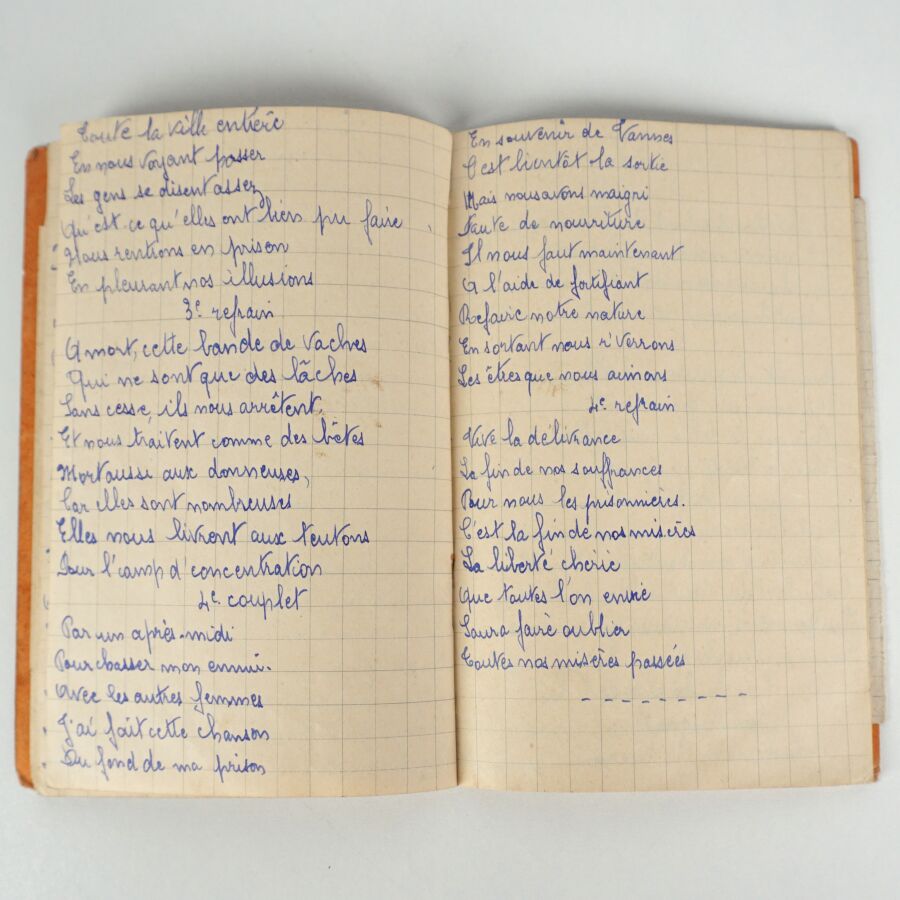 Toute la ville entière
En nous voyant passer
Les gens se disent assez
Qu'est-ce qu'elles ont bien pu faire
Nous rentions en prison
En pleurant nos illusions
3e refrain
A mort, cette bande de vaches
Qui ne sont que des lâches
Sans cesse, ils nous arrêtent,
Et nous traitent comme des bêtes
Mort aussi aux donneuses,
Car elles sont nombreuses
Elles nous livrent aux teutons
Pour l'camp d'concentration
4e couplet
Par un après-midi
Pour chasser mon ennui.
Avec les autres femmes
J'ai fait cette chanson
Du fond de ma prison
En souvenir de Vannes
C'est bientôt la sortie
Mais nous avons maigri
Faute de nourriture
Il nous faut maintenant
A l'aide de fortifiant
Refaire notre nature
En sortant nous r'verrons
Les êtres que nous aimons
4e refrain
Vive la délivrance
La fin de nos souffrances
Pour nous les prisonnières.
C'est la fin de nos misères
La liberté chérie
Que toutes l'on envie
Saura faire oublier
Toutes nos misères passées